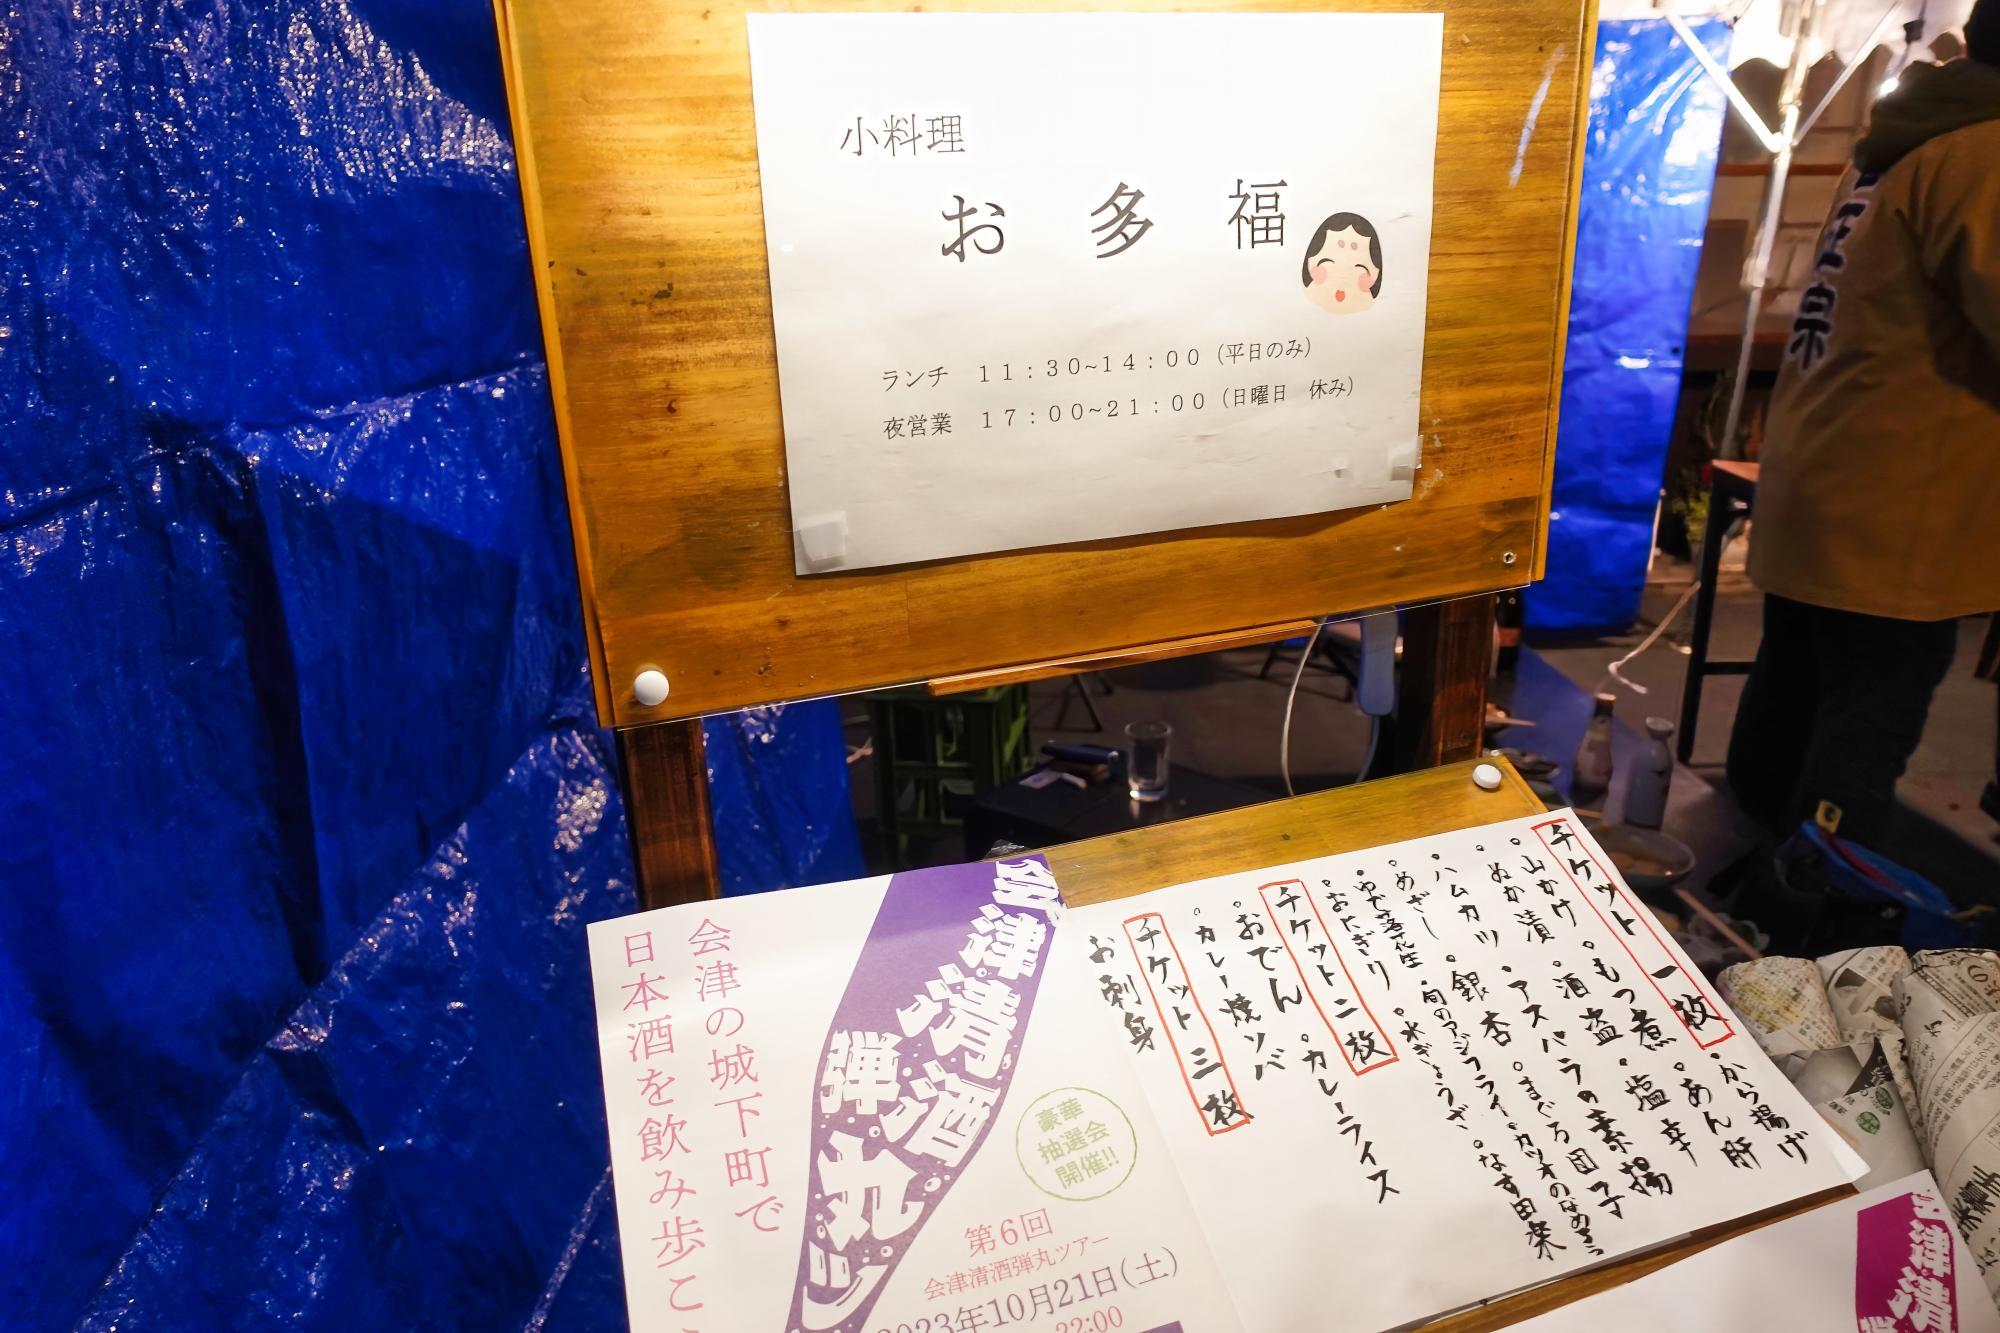 小料理
お多福
ランチ 11:30~14:00(平日のみ)
夜営業 17:00~21:00(日曜日 休み)
チケット一枚
・山かけ ・もつ煮 ・から揚げ
・ぬか漬 ・酒盗 ・塩辛 ・あん肝
・ハムカツ ・アスパラの素揚
・めざし ・銀杏 ・まぐろ団子
・ゆで落花生 ・旬のアジフライ ・カツオのなめろう
・おにぎり ・水ぎょうざ ・なす田楽
チケット二枚
・おでん ・カレーライス
・カレー焼ソバ
チケット三枚
お刺身
会津の城下町で
日本酒を飲み歩こ
会津清酒
弾丸ツ
豪華
抽選会
開催!!
第6回
会津清酒弾丸ツアー
2023年10月21日(土)
22:00